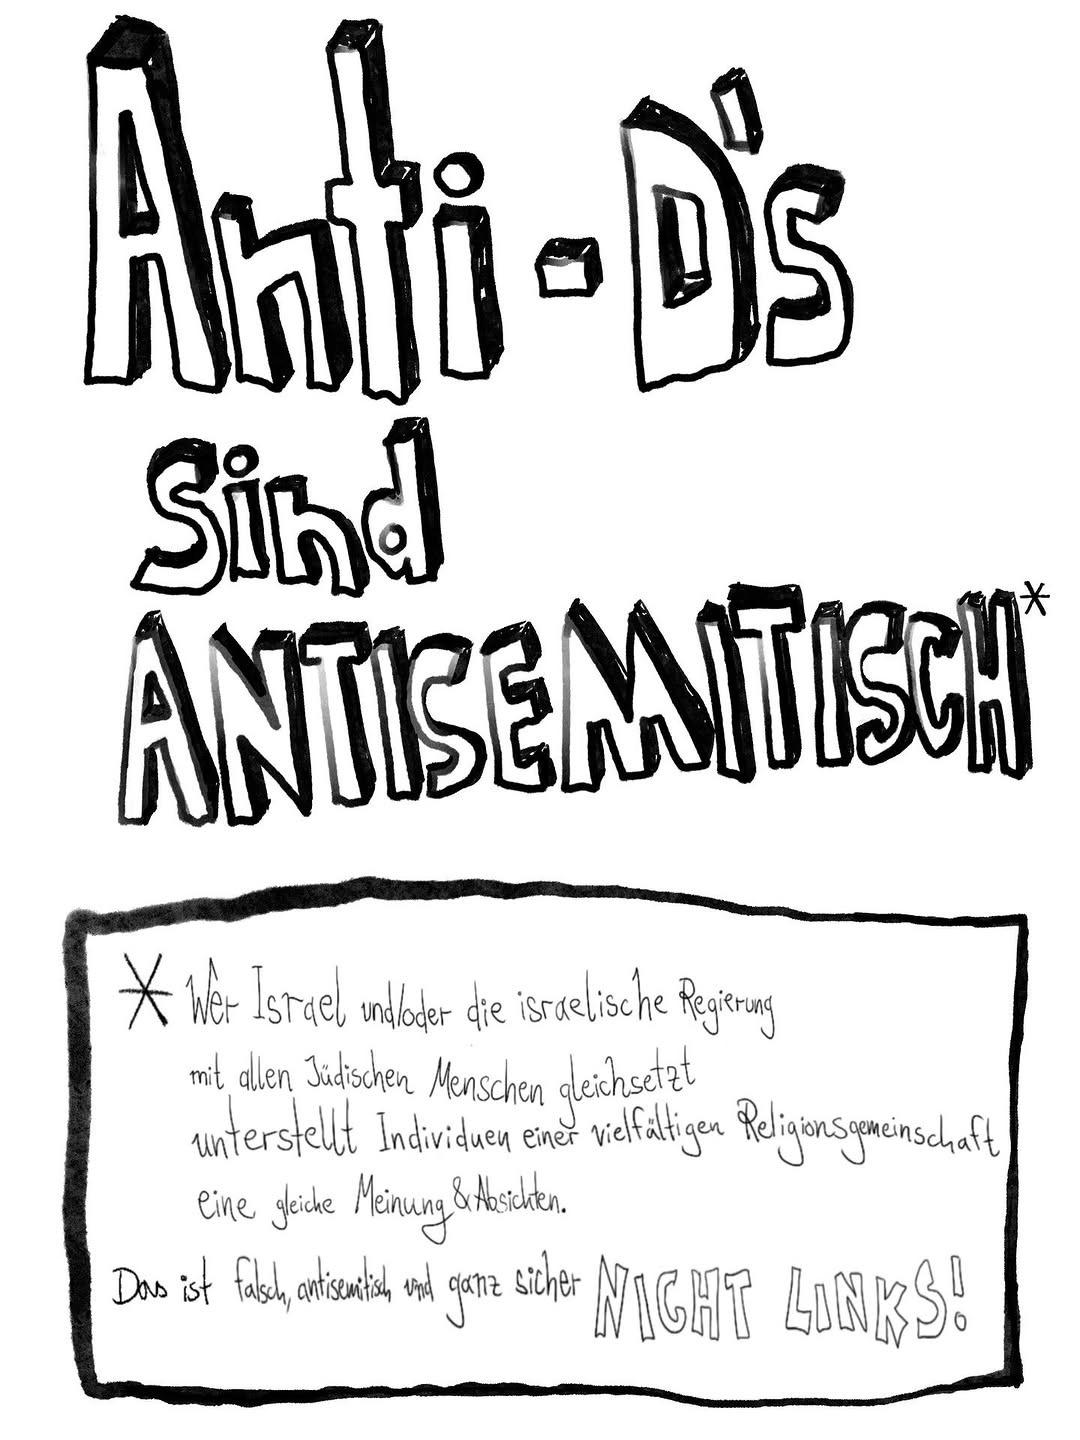 Anti-D's
Sind
ANTISEMITISCH*
* Wer Israel und/oder die israelische Regierung
mit allen Jüdischen Menschen gleichsetzt
unterstellt Individuen einer vielfältigen Religionsgemeinschaft
eine gleiche Meinung & Absichten.
Das ist falsch, antisemitisch und ganz sicher NICHT LINKS!